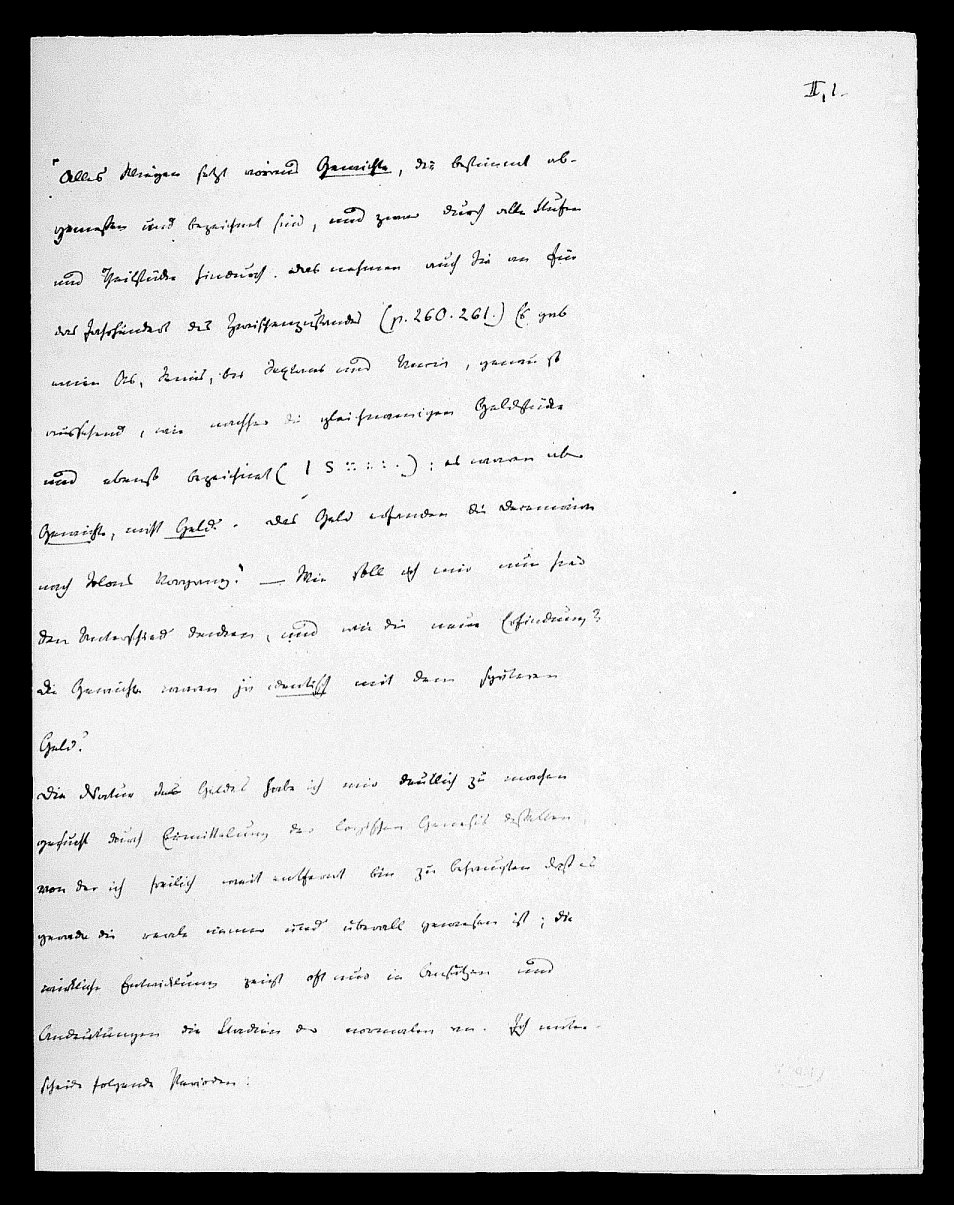 II, 1.
"Alles Wiegen setzt voraus Gewichte, die bestimmt ab-
gemessen und bezeichnet sind, und zwar durch alle Stufen
und Theilstücke hindurch. Das nehmen auch Sie an für
das Jahrhundert des Zwischenzustandes (p. 260. 261.) Es gab
einen As, Semis, bes Sextans und Uncia, genau so
aussehend, wie nachher die gleichnamigen Geldstücke
und ebenso bezeichnet ( I S :: : : . ) : es waren aber
Gewichte, nicht Geld. Das Geld erfanden die Decemvirn
nach Solons Vorgang." — Wie soll ich mir nun hier
den Unterschied denken, und wie die neue Erfindung?
Die Gewichte waren ja identisch mit dem späteren
Geld."
Die Natur des Geldes habe ich mir deutlich zu machen
gesucht durch Ermittelung der logischen Genesis desselben,
von der ich freilich weit entfernt bin zu behaupten daß es
gerade die reale immer und überall gewesen ist; die
wirkliche Entwicklung zeigt oft nur in Ansätzen und
Andeutungen die Stadien der normalen an. Ich unter-
scheide folgende Perioden: